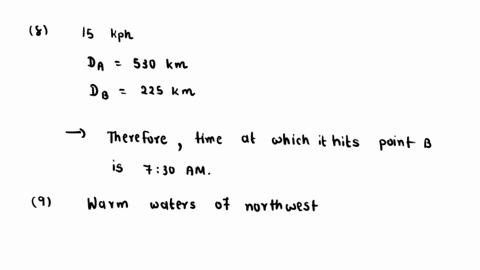 (8) 15 kph
D_A = 530 km
D_B = 225 km
→ Therefore, time at which it hits point B
is 7:30 AM.
(9) Warm waters of northwest